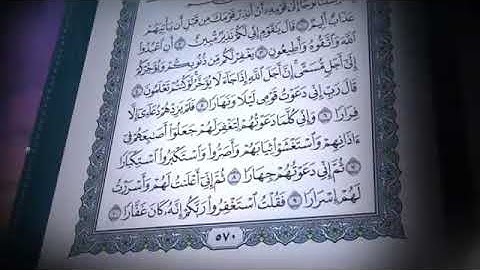 نُوحًا إِلَىٰ قَوْمِهِۦٓ أَنْ أَنذِرْ قَوْمَكَ مِن قَبْلِ أَن يَأْتِيَهُمْ
عَذَابٌ أَلِيمٌ ۝١ قَالَ يَٰقَوْمِ إِنِّي لَكُمْ نَذِيرٌ مُّبِينٌ ۝٢ أَنِ ٱعْبُدُوا۟
ٱللَّهَ وَٱتَّقُوهُ وَأَطِيعُونِ ۝٣ يَغْفِرْ لَكُم مِّن ذُنُوبِكُمْ وَيُؤَخِّرْكُمْ
إِلَىٰٓ أَجَلٍ مُّسَمًّى إِنَّ أَجَلَ ٱللَّهِ إِذَا جَآءَ لَا يُؤَخَّرُ لَوْ كُنتُمْ تَعْلَمُونَ ۝٤
قَالَ رَبِّ إِنِّي دَعَوْتُ قَوْمِي لَيْلًا وَنَهَارًا ۝٥ فَلَمْ يَزِدْهُمْ دُعَآءِيٓ إِلَّا
فِرَارًا ۝٦ وَإِنِّي كُلَّمَا دَعَوْتُهُمْ لِتَغْفِرَ لَهُمْ جَعَلُوٓا۟ أَصَٰبِعَهُمْ فِيٓ
ءَاذَانِهِمْ وَٱسْتَغْشَوْا۟ ثِيَابَهُمْ وَأَصَرُّوا۟ وَٱسْتَكْبَرُوا۟ ٱسْتِكْبَارًا
۝٧ ثُمَّ إِنِّي دَعَوْتُهُمْ جِهَارًا ۝٨ ثُمَّ إِنِّيٓ أَعْلَنتُ لَهُمْ وَأَسْرَرْتُ
لَهُمْ إِسْرَارًا ۝٩ فَقُلْتُ ٱسْتَغْفِرُوا۟ رَبَّكُمْ إِنَّهُۥ كَانَ غَفَّارًا ۝١٠
٥٧٠